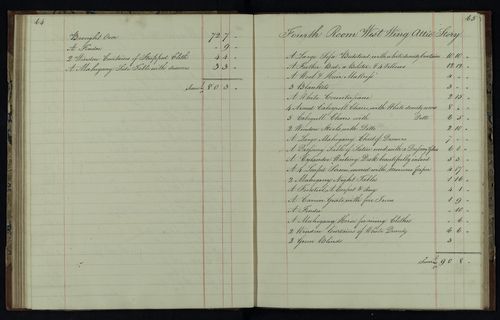 64
Brought Over 72 7 -
A Fender - 9 -
2 Window Curtains of Stripped Cloth 4 4 -
A Mahogany Side Table with drawers 3 3 -
Sum £ 80 3 -
65
Fourth Room West Wing Attic Story
A Large Sofa Bedstead with white dimity Curtains 10 10 -
A Feather Bed, a Bolster & 4 Pillows 12 12 -
A Wool & Hair Mattress
3 Blankets 3 - -
A White Counterpane 2 15 -
4 Armed Calvepill Chairs with White dimity covers 8 - -
3 Calvepill Chairs with Ditto 6 5 -
2 Window Stools with Ditto 2 10 -
A Large Mahogany Chest of Drawers 7 - -
A Dressing Table of Satin wood with a Dressing Glass 6 6 -
A Cylinder Writing Desk beautifully inlaid 5 5 -
A 4 Leafed Screen covered with Paper 4 17 -
2 Mahogany Night Tables 1 16 -
A Carpet & Rug 4 1 -
A Grate with fire Irons 1 9 -
A Fender - 10 -
A Mahogany Horse for airing Clothes - 6 -
2 Window Curtains of White Dimity 6 6 -
2 Green Blinds 3
Sum £ 90 8 -